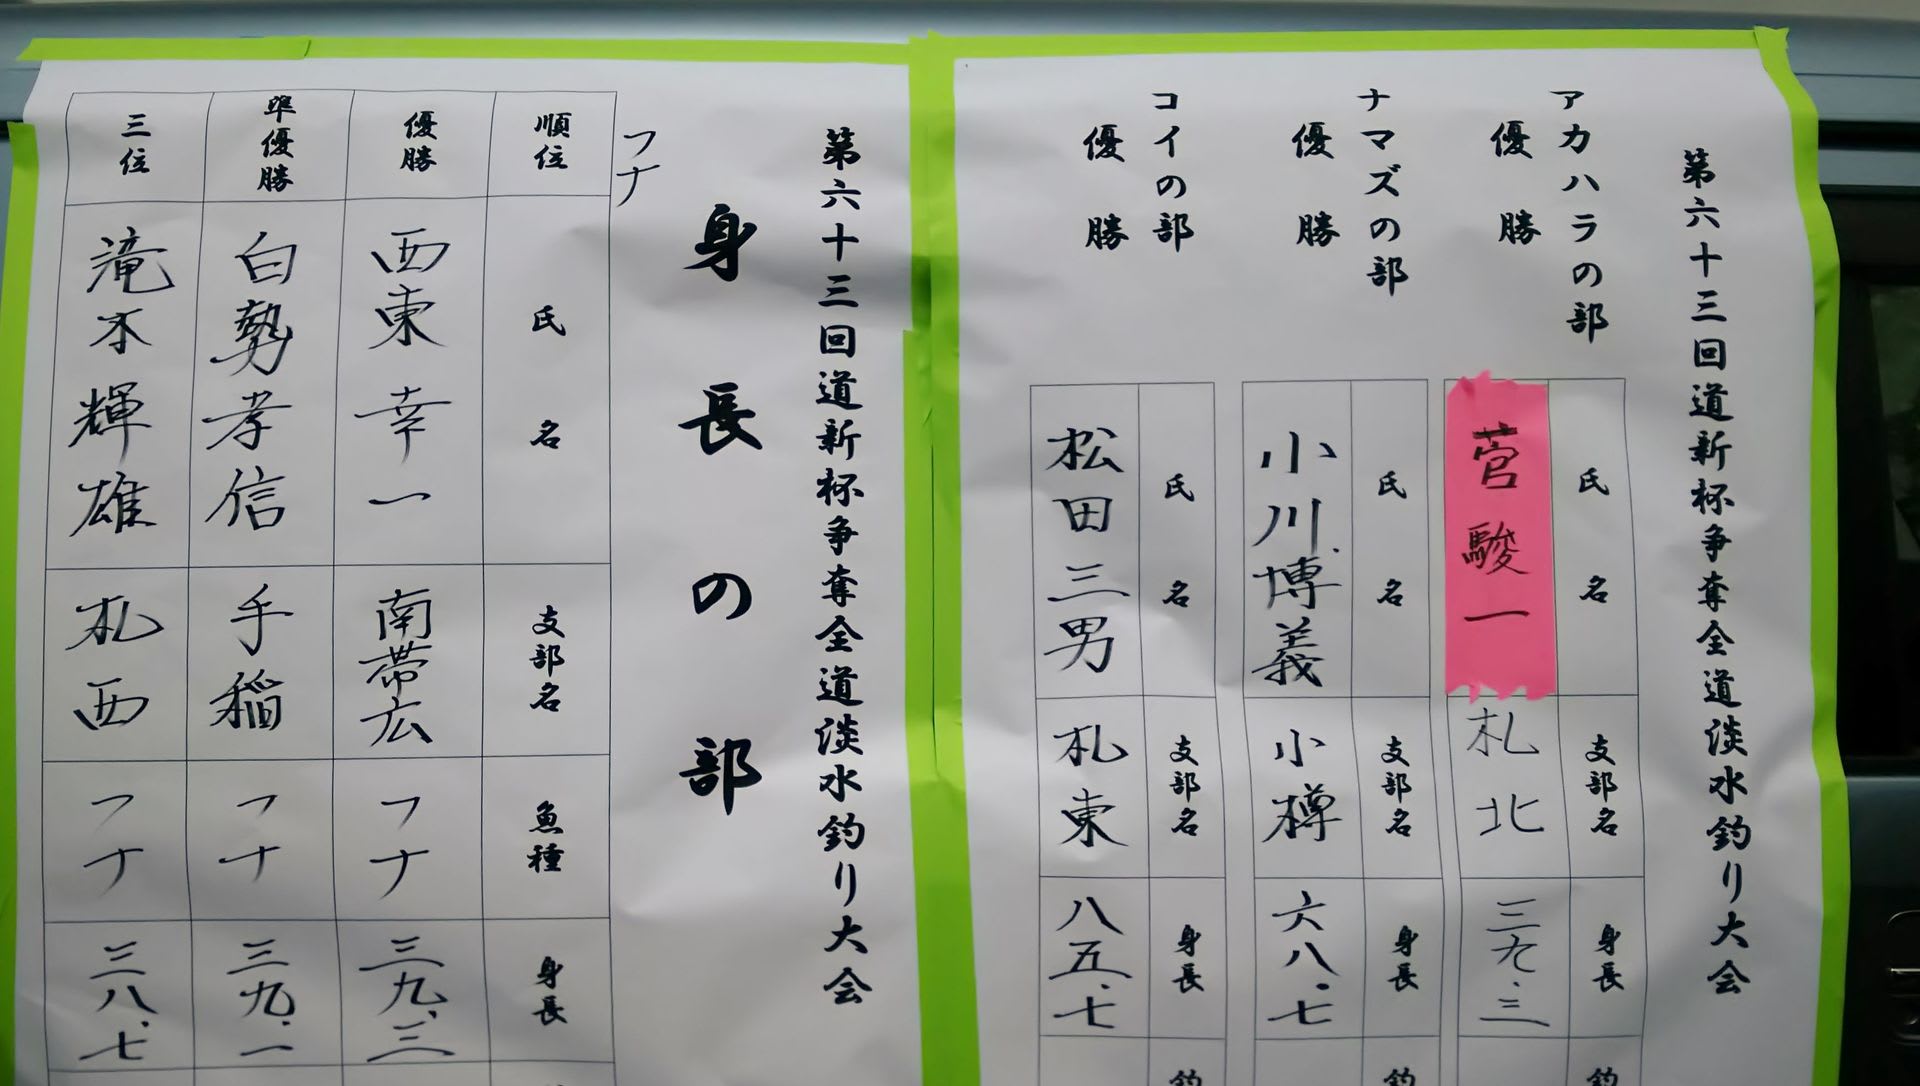 第六十三回道新杯争奪全道淡水釣り大会
アカハラの部
優勝
氏名
支部名
身長
釣
菅駿一
札北
三九.三
ナマズの部
優勝
氏名
支部名
身長
釣
小川博義
小樽
六八.七
コイの部
優勝
氏名
支部名
身長
釣
松田三男
札東
八五.七
第六十三回道新杯争奪全道淡水釣り大会
身長の部
フナ
順位
氏名
支部名
魚種
身長
優勝
西東幸一
南帯広
フナ
三九.三
準優勝
白勢孝信
手稲
フナ
三九.一
三位
滝本輝雄
札西
フナ
三八.七